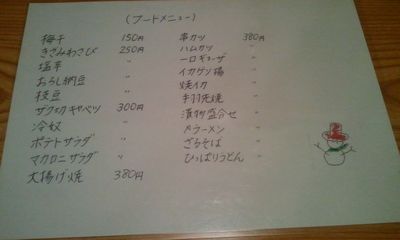 (フードメニュー)
梅干 150円
きざみわさび 250円
塩辛 〃
おろし納豆 〃
枝豆 〃
ザクザクキャベツ 300円
冷奴 〃
ポテトサラダ 〃
マカロニサラダ 〃
大揚げ焼 380円
串カツ 380円
ハムカツ 〃
一口ギョーザ 〃
イカゲソ揚 〃
焼イカ 〃
手羽先焼 〃
漬物盛合せ 〃
〆ラーメン 〃
ざるそば 〃
ひっぱりうどん 〃